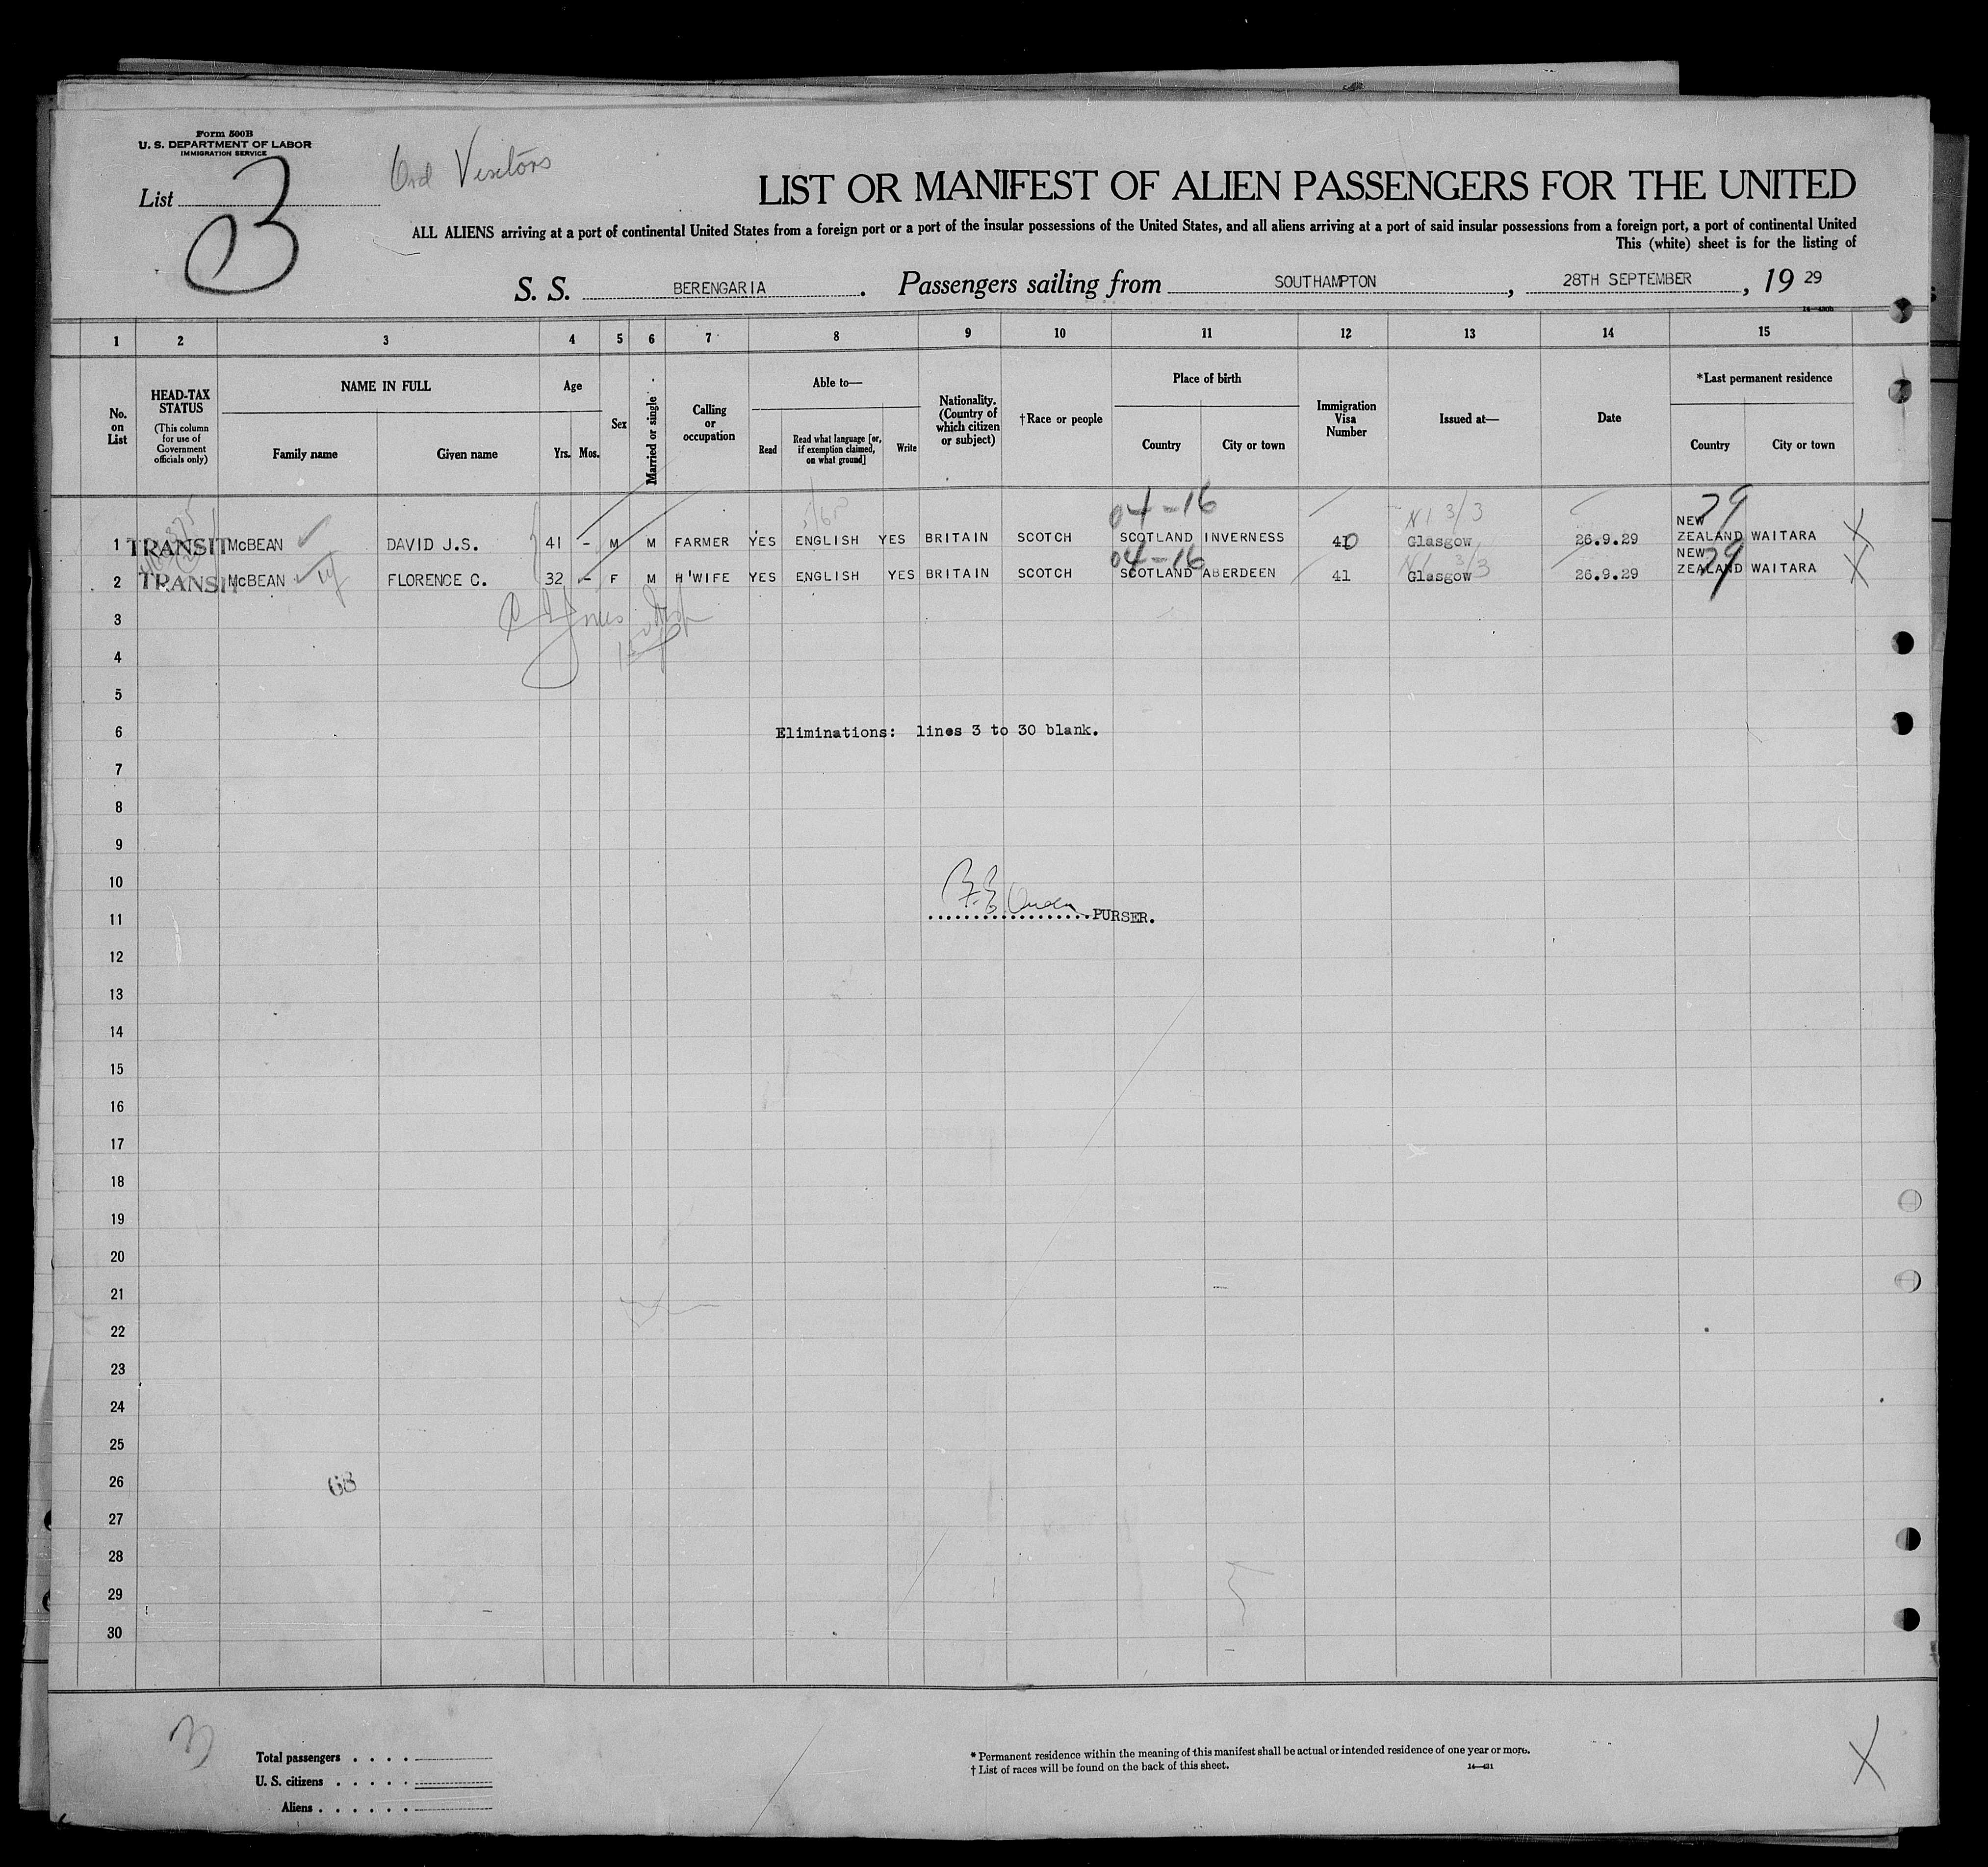 Form 500B
U. S. DEPARTMENT OF LABOR
IMMIGRATION SERVICE
List 3
Visitors
LIST OR MANIFEST OF ALIEN PASSENGERS FOR THE UNITED
ALL ALIENS arriving at a port of continental United States from a foreign port or a port of the insular possessions of the United States, and all aliens arriving at a port of said insular possessions from a foreign port, a port of continental United
This (white) sheet is for the listing of
S. S. BERENGARIA. Passengers sailing from SOUTHAMPTON, 28TH SEPTEMBER, 19 29
1 2 3 4 5 6 7 8 9 10 11 12 13 14 15
No. on List
HEAD-TAX STATUS
(This column for use of Government officials only)
NAME IN FULL
Family name
Given name
Age
Yrs. Mos.
Sex
Married or single
Calling or occupation
Able to—
Read
Read what language [or, if exemption claimed, on what ground]
Write
Nationality. (Country of which citizen or subject)
†Race or people
Place of birth
Country
City or town
Immigration Visa Number
Issued at—
Date
*Last permanent residence
Country
City or town
04-16 79
1 TRANSIT McBEAN DAVID J.S. 41 - M M FARMER YES ENGLISH YES BRITAIN SCOTCH SCOTLAND INVERNESS 40 Glasgow 26.9.29 NEW ZEALAND WAITARA
04-16 79
2 TRANSIT McBEAN FLORENCE C. 32 - F M H'WIFE YES ENGLISH YES BRITAIN SCOTCH SCOTLAND ABERDEEN 41 Glasgow 26.9.29 NEW ZEALAND WAITARA
3
4
5
6 Eliminations: lines 3 to 30 blank.
7
8
9
10
11 PURSER.
12
13
14
15
16
17
18
19
20
21
22
23
24
25
26 68
27
28
29
30
Total passengers
U. S. citizens
Aliens
* Permanent residence within the meaning of this manifest shall be actual or intended residence of one year or more.
† List of races will be found on the back of this sheet.
14—431